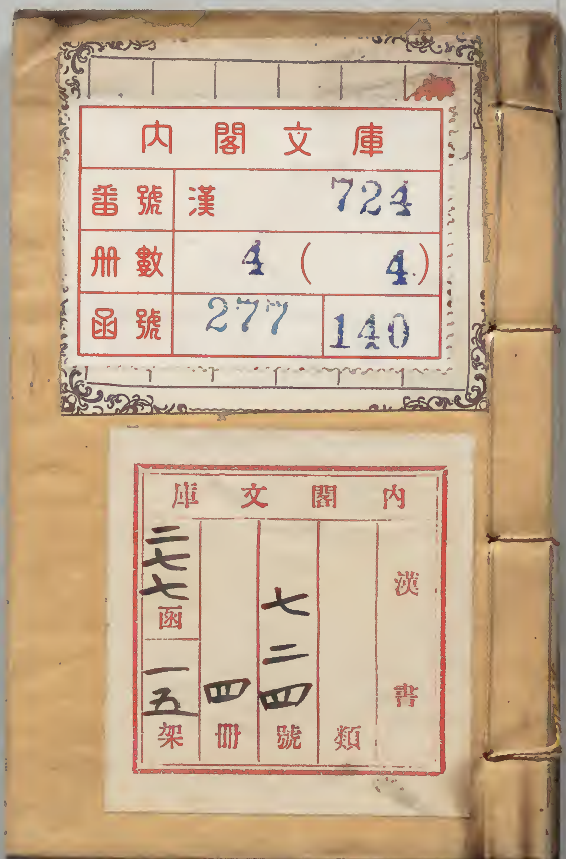 内閣文庫
番號 漢 724
册數 4 (4)
函號 277 140
内閣文庫
漢書
類
七二四號
四冊
二七七函
一五架